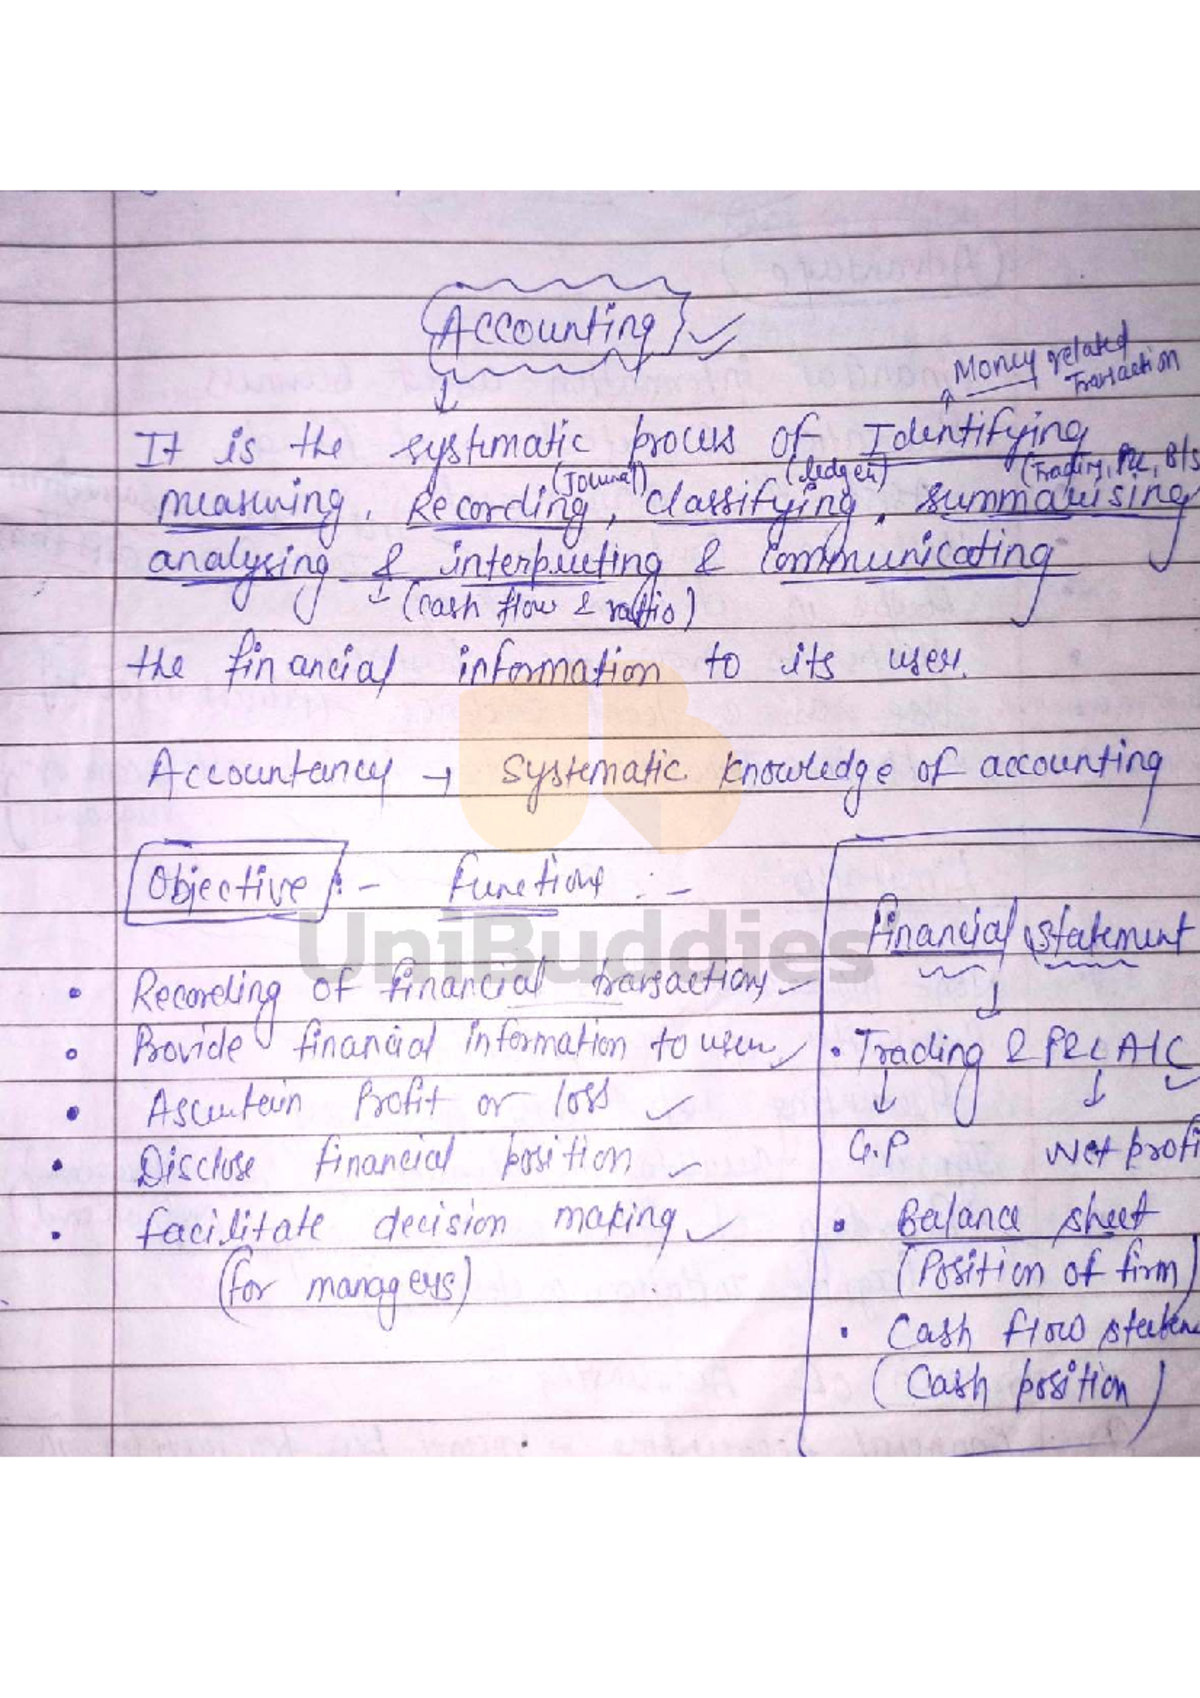 Accounting
Money related
Transaction
It is the systematic process of Identifying
(Journal) (ledger) (Trading, P&L, B/S
measuring, Recording, classifying, summarising
analysing & interpreting & communicating
(cash flow & ratio)
the financial information to its user.
Accountancy → Systematic knowledge of accounting
Objective :- functions :-
UniBuddies
• Recording of financial transactions
• Provide financial information to user
• Ascertain Profit or loss
• Disclose financial position
• facilitate decision making
(for managers)
financial statement
• Trading & P&L A/C
G.P Net profi
• Balance sheet
(Position of firm)
• Cash flow stateme
(Cash position)